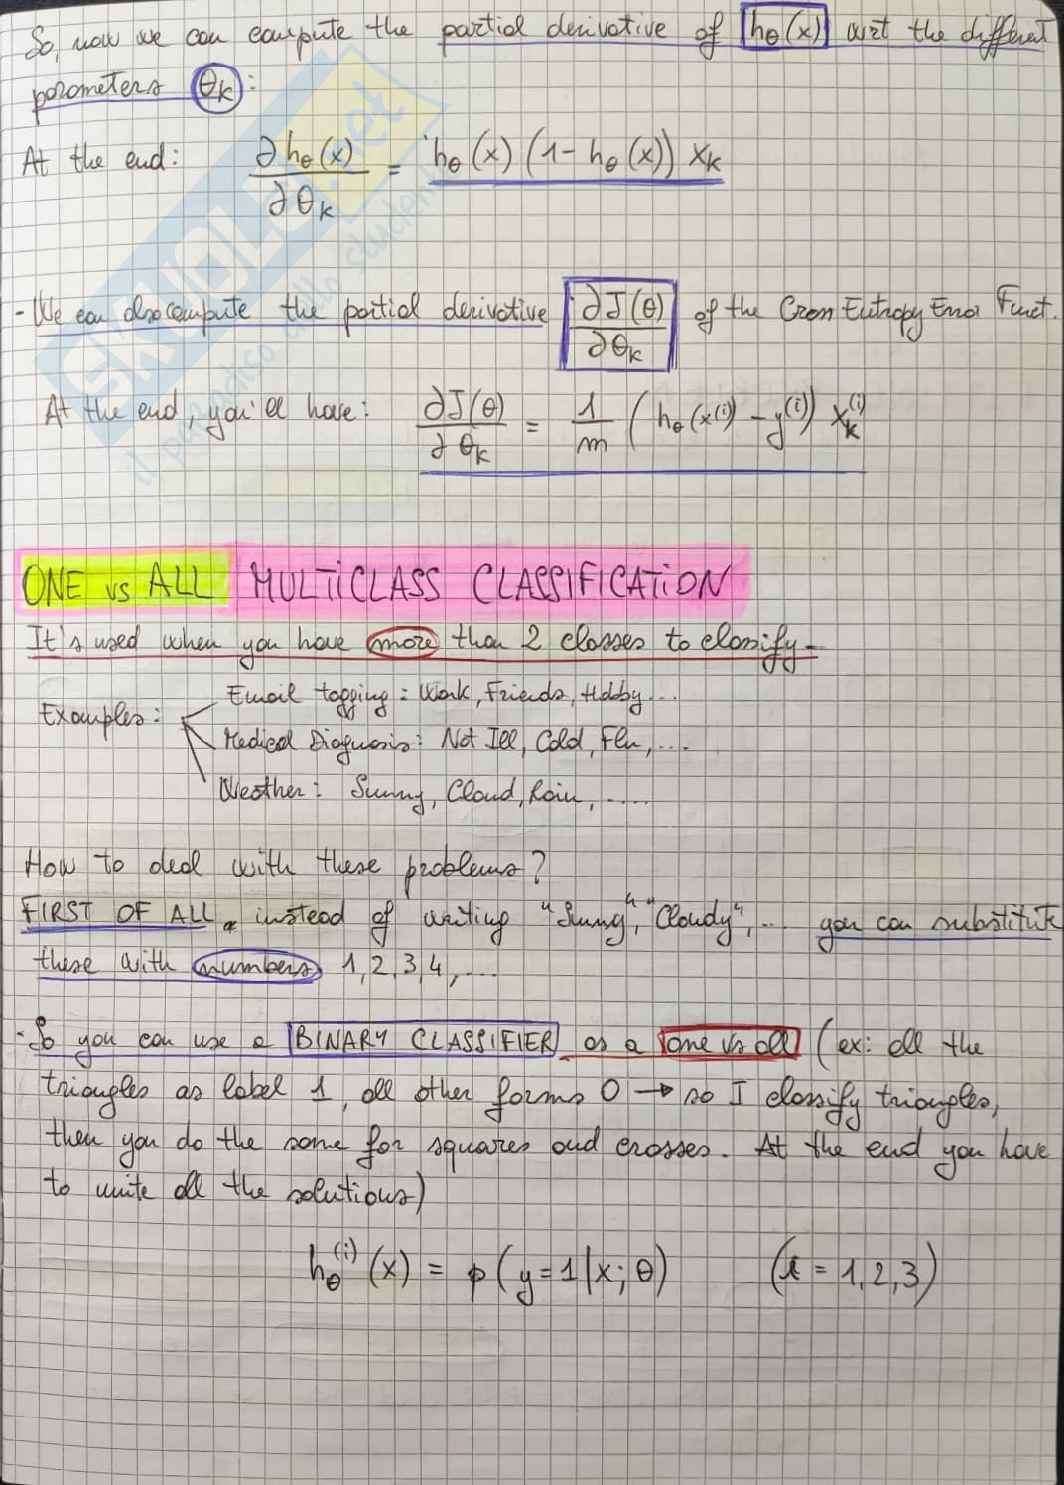 So, now we can compute the partial derivative of hθ(x) wrt the different
parameters θk:
At the end: ∂hθ(x)/∂θk = hθ(x) (1 - hθ(x)) xk
- We can also compute the partial derivative ∂J(θ)/∂θk of the Cross Entropy Error Funct.
At the end, you'll have: ∂J(θ)/∂θk = 1/m (hθ(x^(i)) - y^(i)) xk^(i)
ONE vs ALL MULTICLASS CLASSIFICATION
It's used when you have more than 2 classes to classify-
Examples:
Email tagging: Work, Friends, Hobby...
Medical Diagnosis: Not Ill, Cold, Flu,....
Weather: Sunny, Cloud, Rain,.....
How to deal with these problems?
FIRST OF ALL, instead of writing "Sunny", "Cloudy",... you can substitute
these with numbers 1,2,3,4,...
- So you can use a BINARY CLASSIFIER as a one vs all (ex: all the
triangles as label 1, all other forms 0 → so I classify triangles,
then you do the same for squares and crosses. At the end you have
to unite all the solutions)
hθ^(i)(x) = p(y=1|x;θ) (i = 1,2,3)
SKUOLA.net
il paradiso dello studente